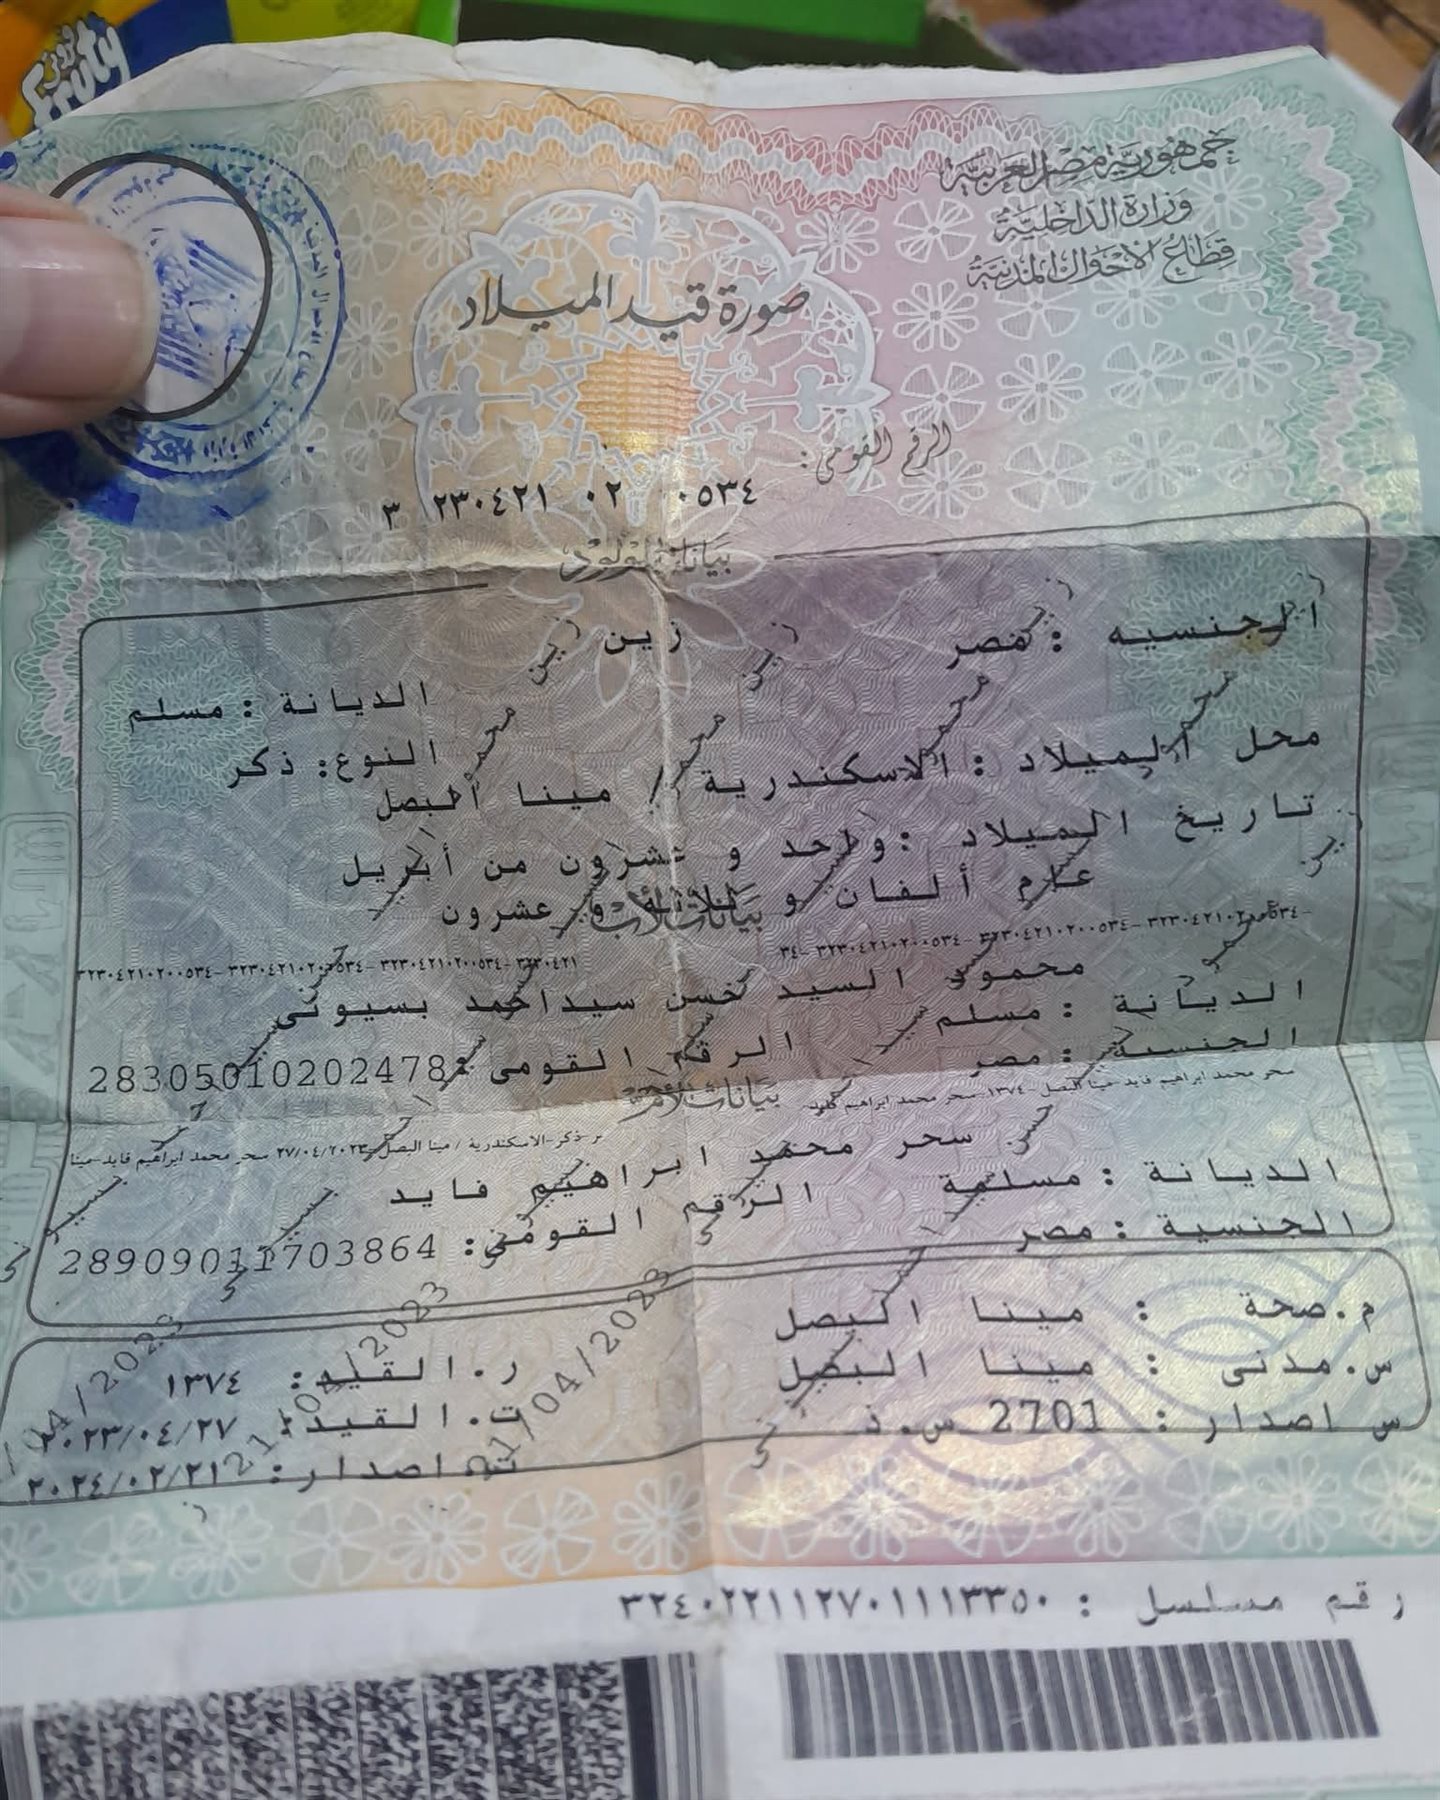 جمهورية مصر العربية
وزارة الداخلية
قطاع الأحوال المدنية
صورة قيد الميلاد
الرقم القومى :
٣ ٢٣٠٤٢١ ٠٢ ٠٥٣٤
بيانات المولود
زين
الجنسيه : مصر
الديانة : مسلم
النوع: ذكر
محل الميلاد : الاسكندرية / مينا البصل
تاريخ الميلاد : واحد و عشرون من أبريل
عام ألفان و ثلاثة و عشرون
بيانات الأب
محمود السيد حسن سيداحمد بسيونى
الديانة : مسلم
الرقم القومى : 28305010202478
الجنسية : مصر
بيانات الأم
سحر محمد ابراهيم فايد
الديانة : مسلمة
الرقم القومى : 28909011703864
الجنسية : مصر
م.صحة : مينا البصل
س.مدنى : مينا البصل
ر.القيد : ١٣٧٤
ت.القيد : ٢٠٢٣/٠٤/٢٧
س اصدار : 2701 س.ذ
ت اصدار : ٢٠٢٤/٠٢/٢١
21/04/2023
رقم مسلسل : ٣٢٤٠٢٢١١٢٧٠١١١٣٣٥٠
Fruty